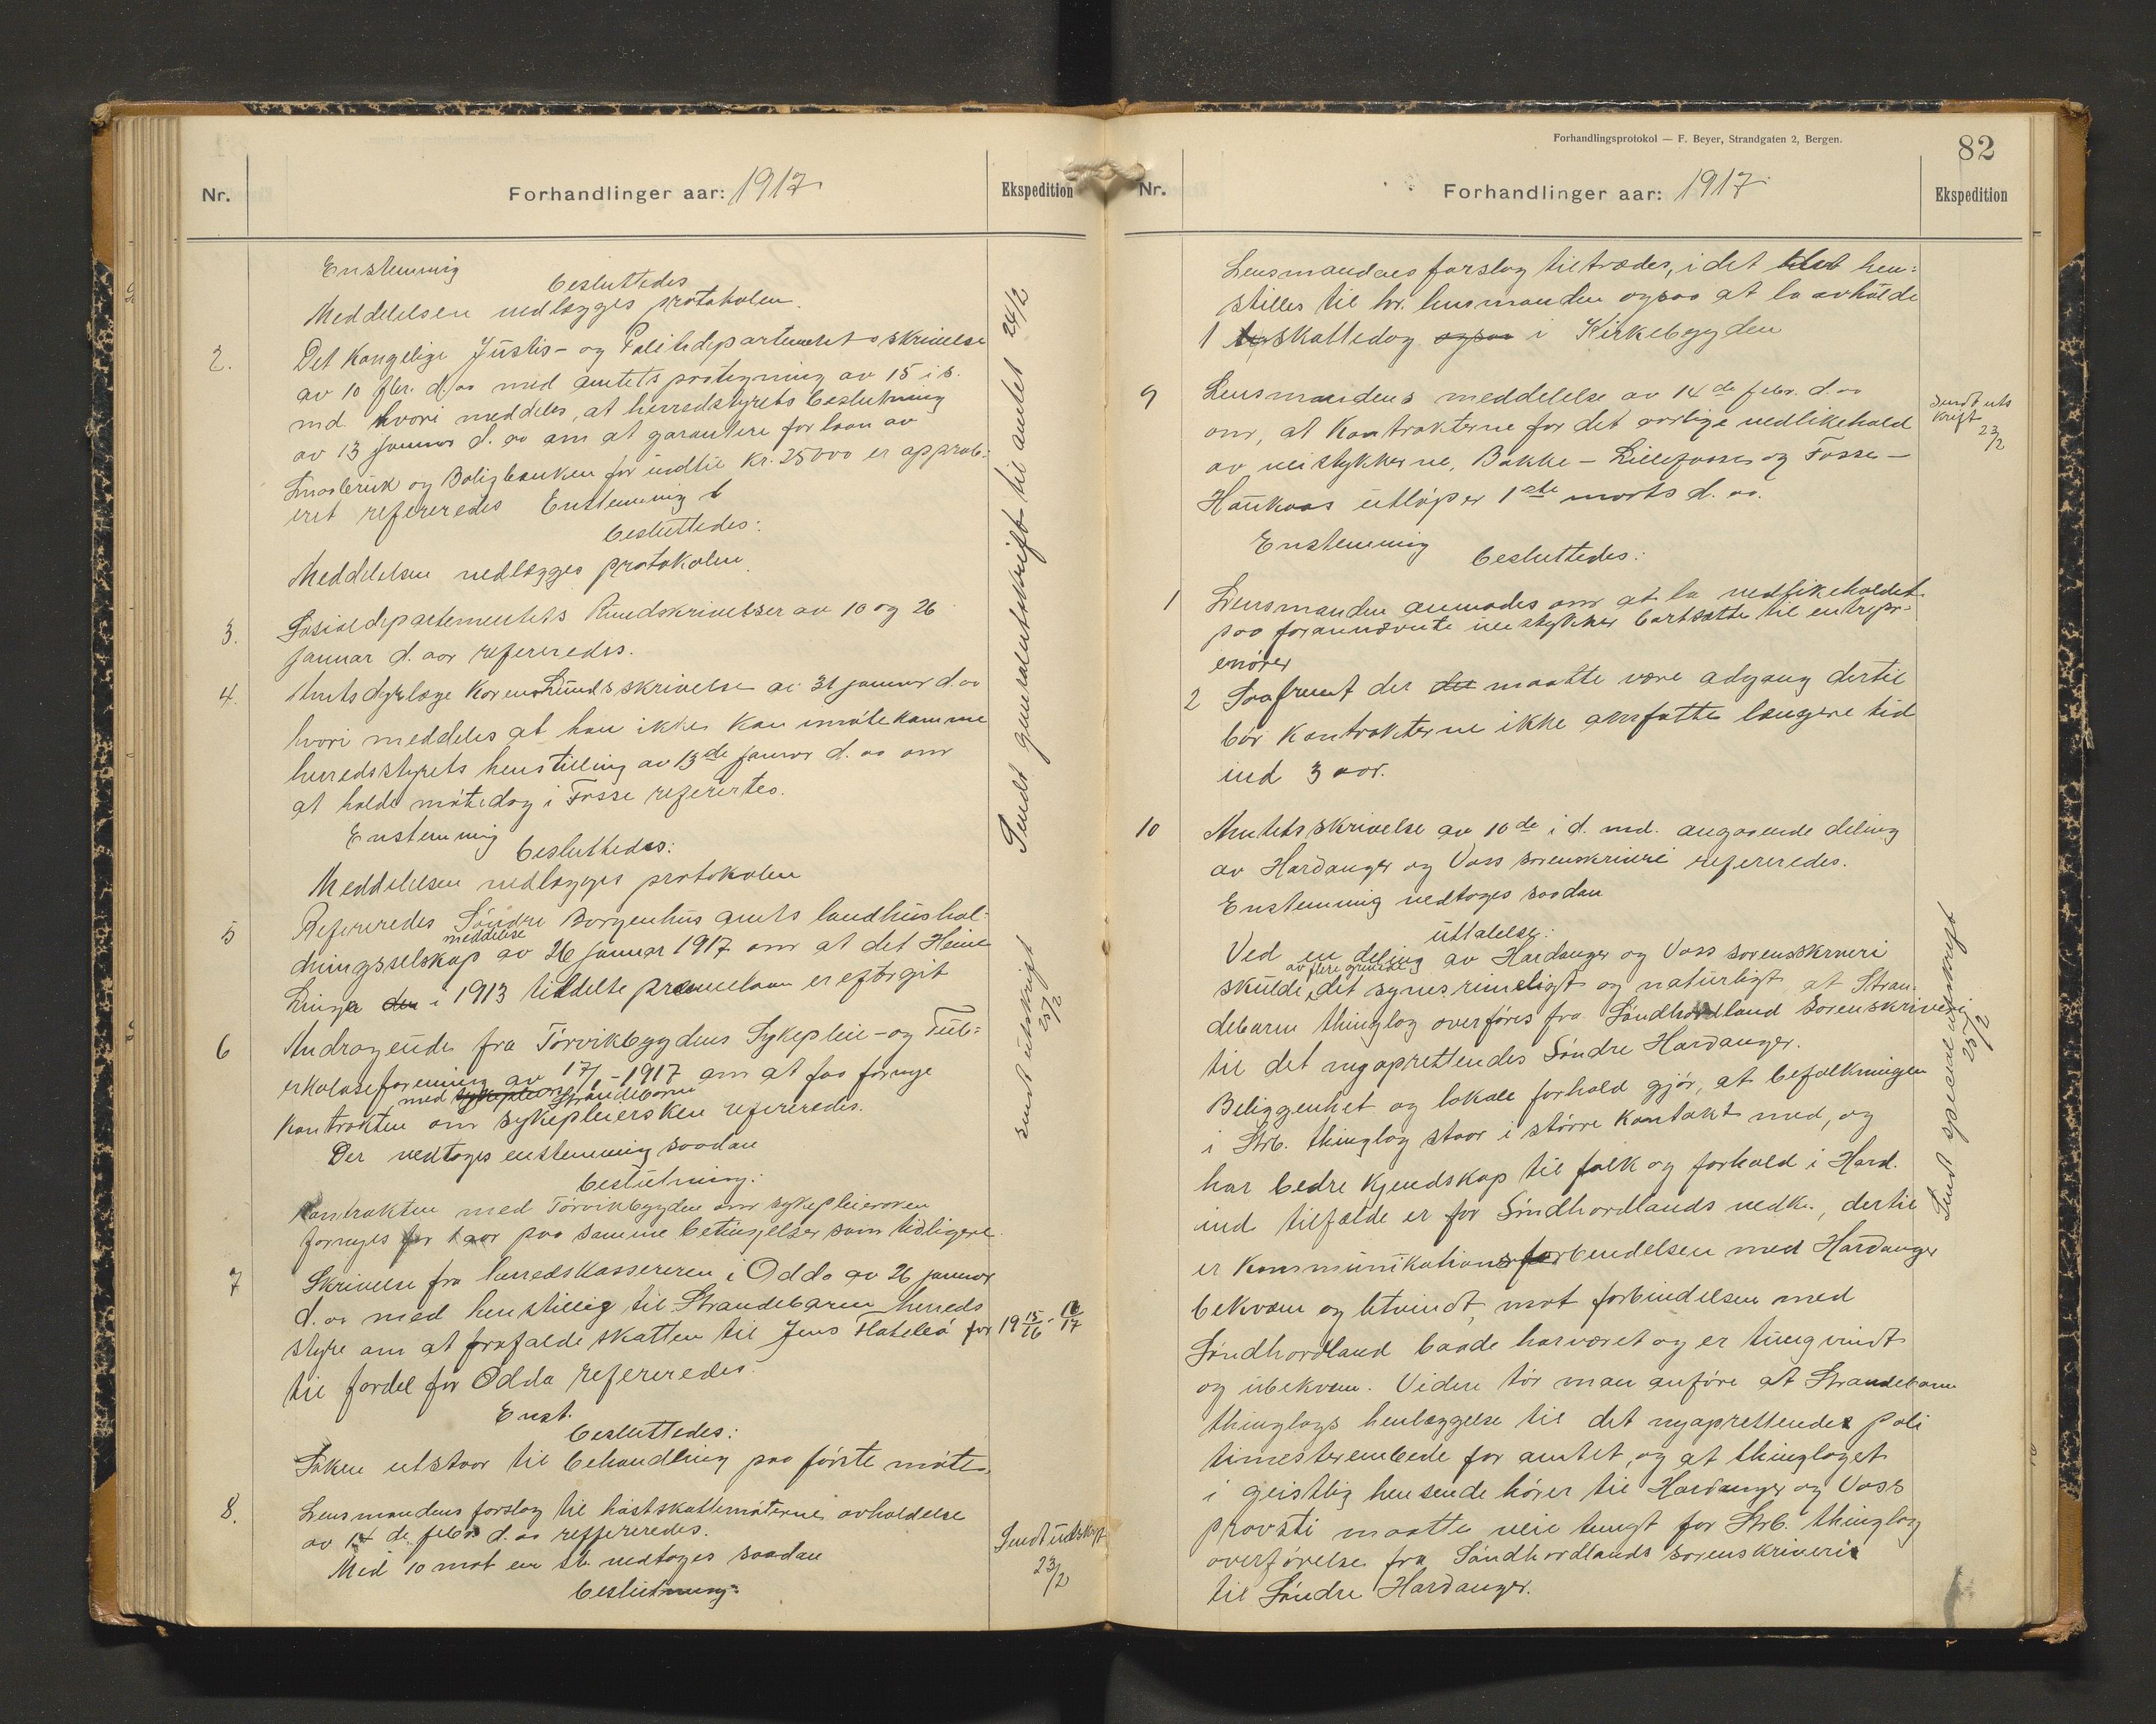 Nr.
Forhandlinger aar: 1917
Ekspedition
Enstemmig
besluttedes
Meddelelsen nedlægges protokolen.
2. Det Kongelige Justis- og Politidepartements skrivelse
av 10 fbr. d. aa med amtets paategning av 15 i s.
md. hvori meddeles, at herredstyrets beslutning
av 13 januar d. aa om at garantere for laan av
Smaabruk og Boligbanken for indtil kr. 25000 er approb-
eret refereredes Enstemmig b
besluttedes:
Meddelelsen nedlægges protokolen.
3. Sosialdepartementets Rundskrivelser av 10 og 26
januar d. aar refereredes.
4. Amtsdyrlæge Horenslunds skrivelse av 31 januar d. aa
hvori meddeles at han ikke kan imøtekomme
herredsstyrets henstilling av 13de januar d. aa om
at holde møtedag i Fosse refererteo.
Enstemmig
besluttedes:
Meddelelsen nedlægges protokolen
5 Refereredes Søndre Bergenhus amts landhushol-
meddelse
dningsselskap av 26 januar 1917 om at det Heine
Linga den i 1913 tildelte præmielaan er eftergit
6 Andragende fra Tørvikbygdens Sykepleie- og Tub-
erkoloseforening av 17/1 - 1917 om at faa fornye
med sykepleiers Strandebarm
Kontrakten om sykepleiersken refereredes.
Der vedtoges enstemmig saadan
beslutning:
Kontrakten med Tørvikbygden om sykepleiersken
fornyes for 1 aar paa samme betingelser som tidligere.
7 Skrivelse fra herredskassereren i Odda av 26 januar
d. aa med henstillig til Strandebarm herreds
styre om at frafalde skatten til Jens Hatlelø for 19 15/16 - 16/17
til fordel for Odda refereredes.
Enst.
besluttedes:
Saken utstaar til behandling paa første møte.
8. Lensmandens forslag til høstskattemøternes avholdelse
av 14 de febr d. aa refereredes.
Med 10 mot en st. vedtoges saadan
beslutning:
Sendt generalutskrift til amtet 24/2
sendt utskrift 25/2
Sendt utskr.
23/2
Forhandlingsprotokol — F. Beyer, Strandgaten 2, Bergen.
82
Nr.
Forhandlinger aar: 1917
Ekspedition
Lensmandens forslag tiltrædes, i det hen-
stilles til hr. lensmanden ogsaa at la avholde
1 skattedag ogsaa i Kirkebygden
9 Lensmandens meddelelse av 14de febr. d. aa
om, at Kontrakterne for det aarlige vedlikehold
av veistykkerne, Bakke - Lillefosse og Fosse -
Haukaas utløper 1ste marts d. aa.
Enstemmig
besluttedes:
1 Lensmanden anmodes om at la vedlikeholdet
paa forannævnte veistykker bortsætte til entrepr-
enører
2 Saafremt der det maatte være adgang dertil
bør Kontrakterne ikke omfatte længere tid
ind 3 aar.
10 Amtets skrivelse av 10de i d. md. angaaende deling
av Hardanger og Voss sorenskriveri refereredes.
Enstemmig vedtoges saadan
uttalelse:
Ved en deling av Hardanger og Voss sorenskriveri
av flere grunde
skulde det synes rimeligt og naturligt at Stran-
debarm thinglag overføres fra Søndhordland Sorenskriveri
til det nyoprettendes Søndre Hardanger.
Beliggenhet og lokale forhold gjør, at befolkningen
i Strb. thinglag staar i større kontakt med, og
har bedre kjendskap til folk og forhold i Hard.
ind tilfælde er for Søndhordlands vedk., dertil
er Kommunikationsforbindelsen med Hardanger
bekvem og letvindt, mot forbindelsen med
Søndhordland baade har været og er tungvindt
og ubekvem. Videre tør man anføre at Strandebarm
thinglags henlæggelse til det nyoprettendes poli
timesterembede for amtet, og at thinglaget
i geistlig henseende hører til Hardanger og Voss
provsti maatte veie tungt for Strb. thinglag
overførelse fra Søndhordlands sorenskriveri
til Søndre Hardanger.
Sendt uts
krift
23/2
Sendt specialutskrift 25/2